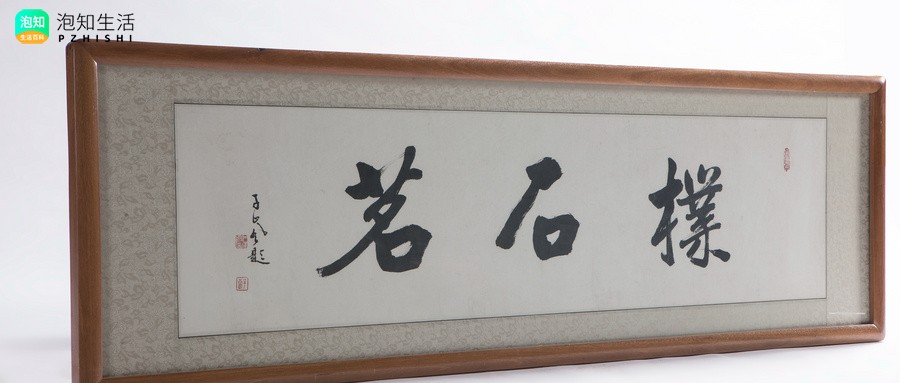 泡知
生活百科
泡知生活
PZHISHI
樸石茗